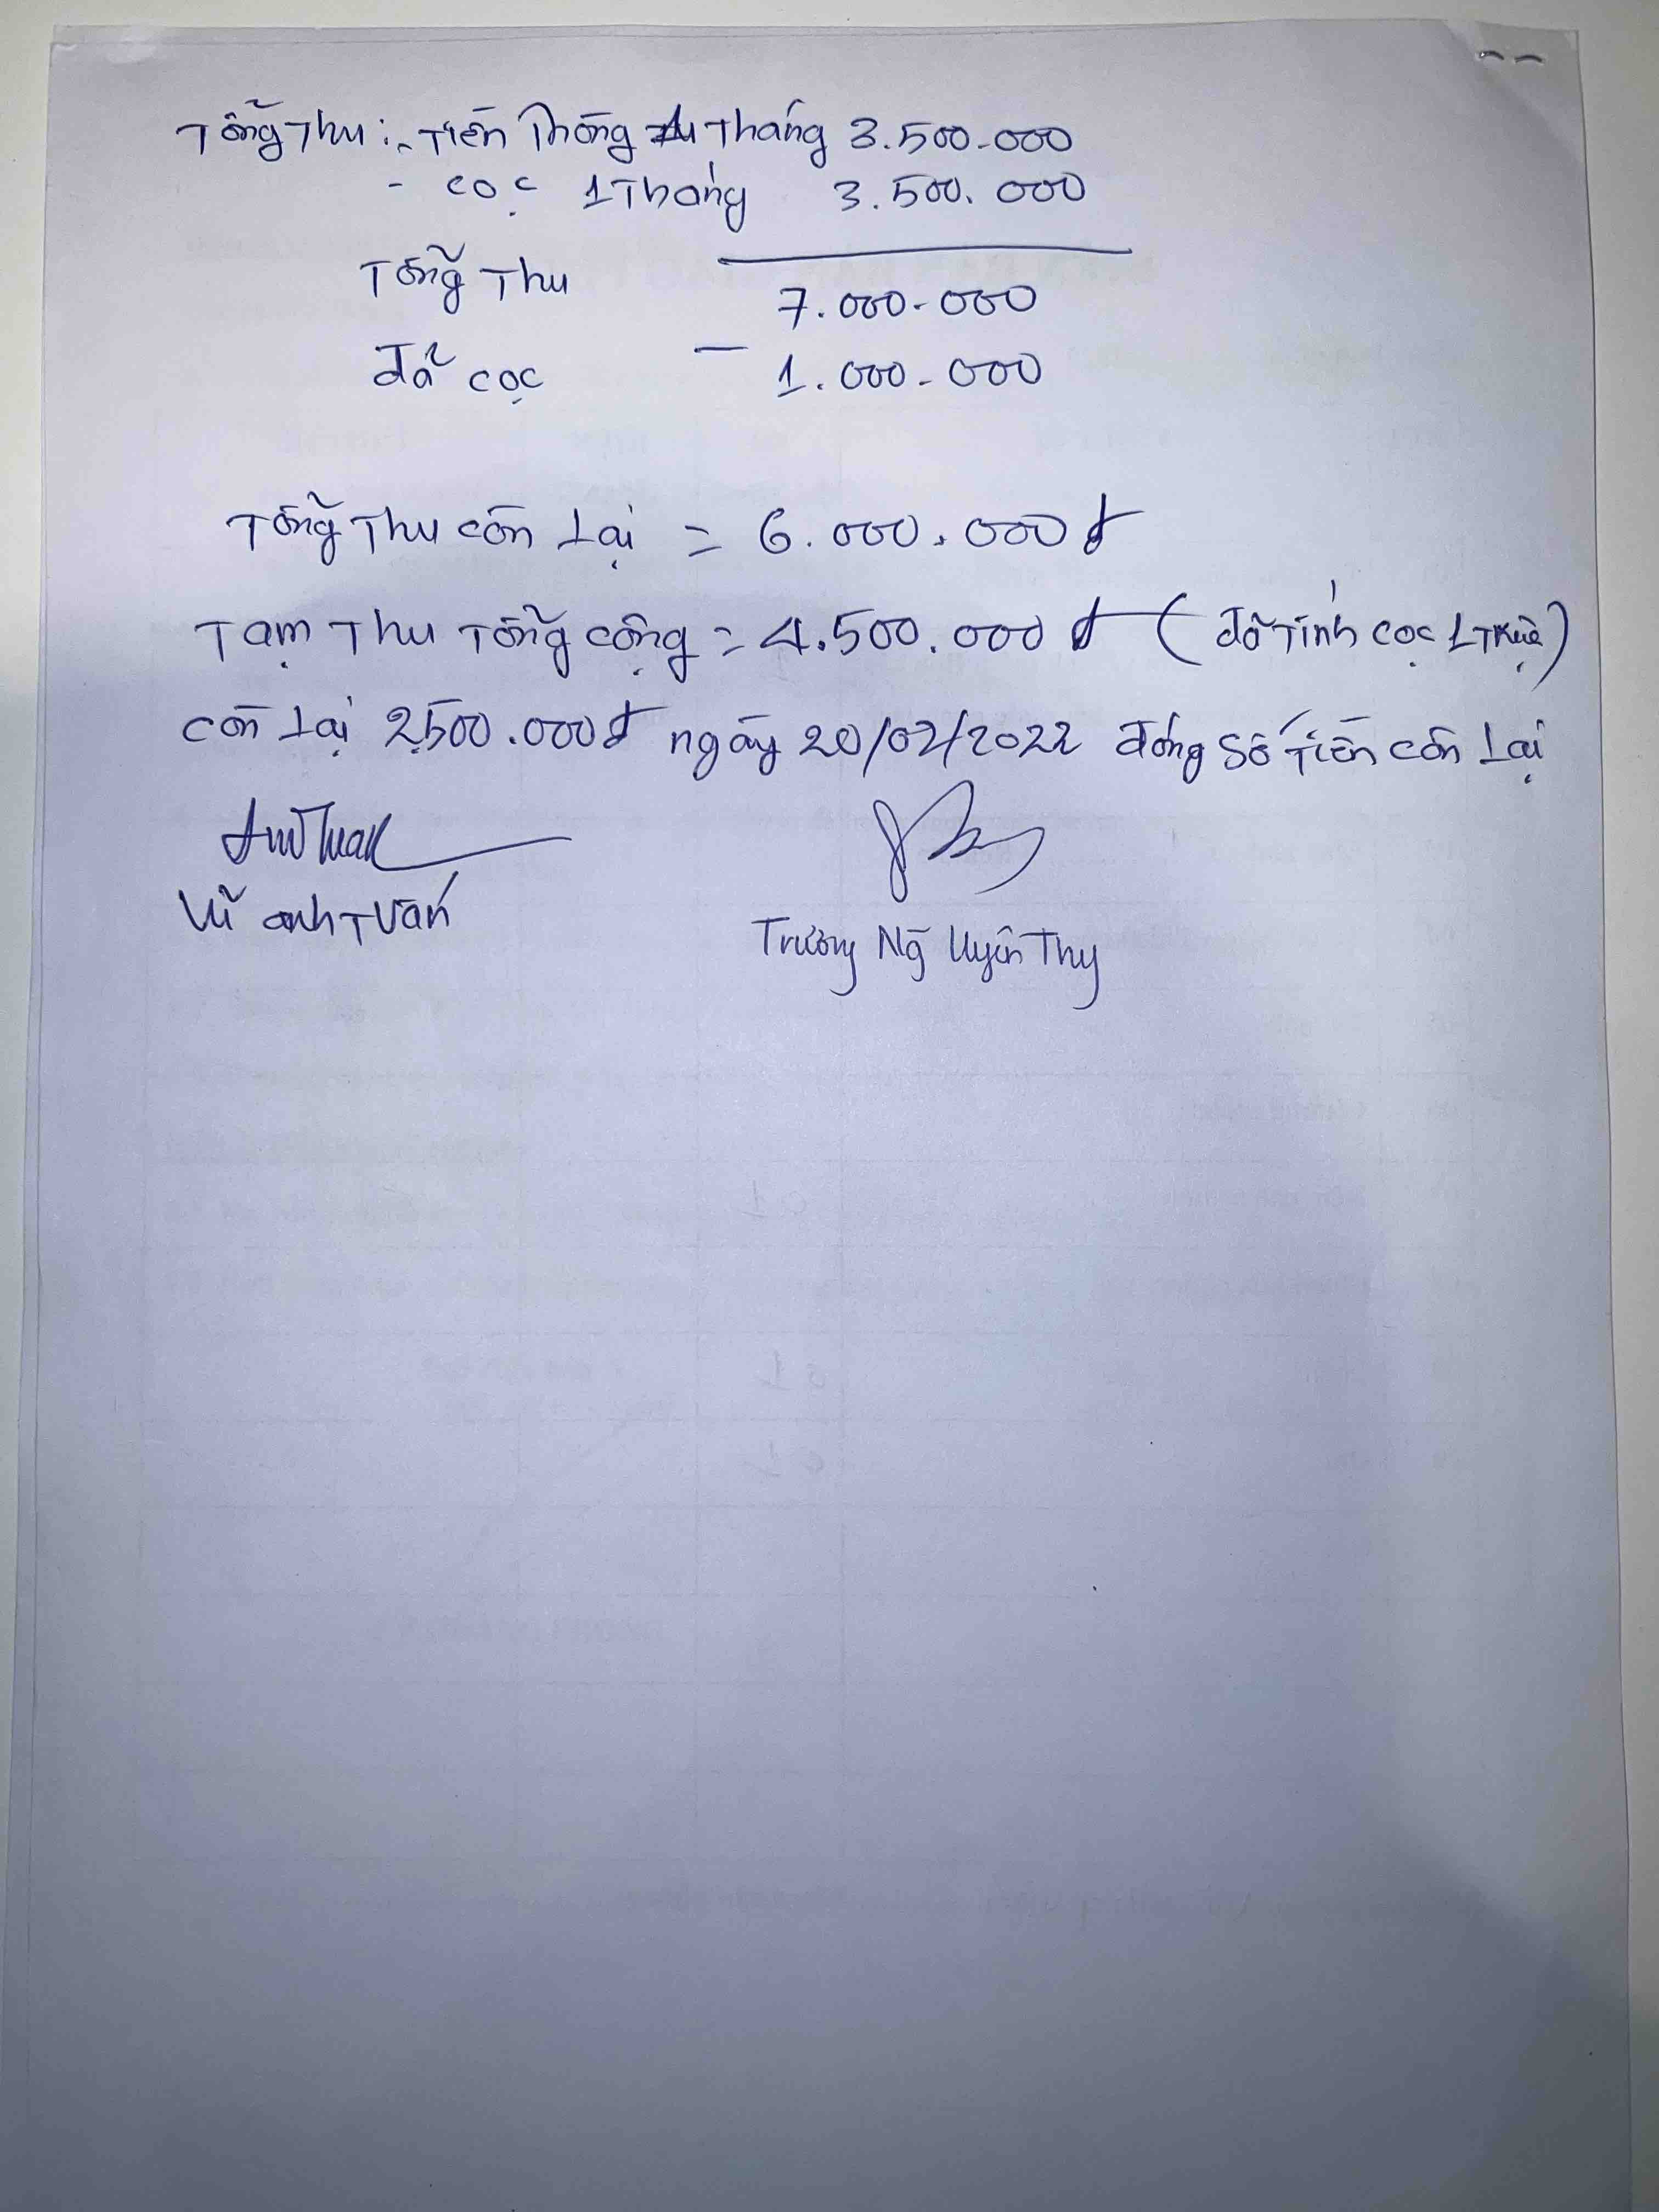 Tổng Thu: - Tiền Phòng 1 Tháng 3.500.000
- cọc 1 Tháng 3.500.000
Tổng Thu 7.000.000
đã cọc - 1.000.000
Tổng Thu còn Lại = 6.000.000đ
Tạm Thu Tổng cộng = 4.500.000đ (đã Tính cọc 1 Triệu)
còn Lại 2.500.000đ ngày 20/02/2022 đóng số Tiền còn Lại
Vũ anh Tuấn
Trương Ng Uyên Thy